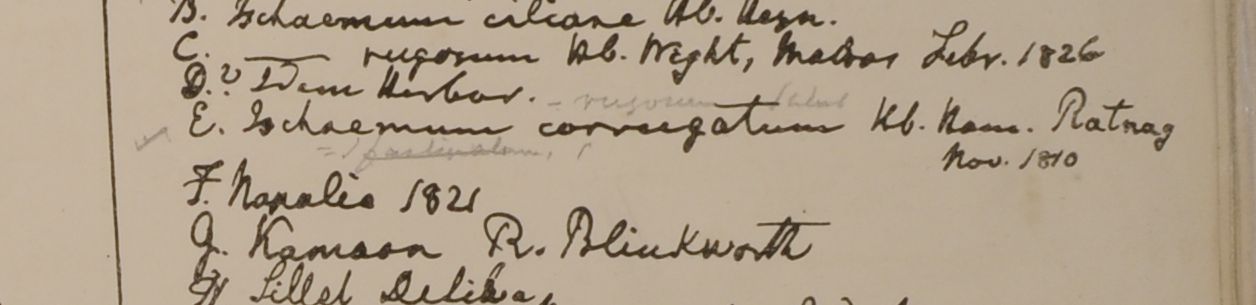 B. Ischaemum ciliare Hb. Heyn.
C. —— rugosum Hb. Wight, Madras Febr. 1826
D.? Idem Herbar. - rugosum
E. Ischaemum corrugatum Hb. Ham. Ratnag
Nov. 1810
F. Napalia 1821
G. Kamaon R. Blinkworth
H Sillet